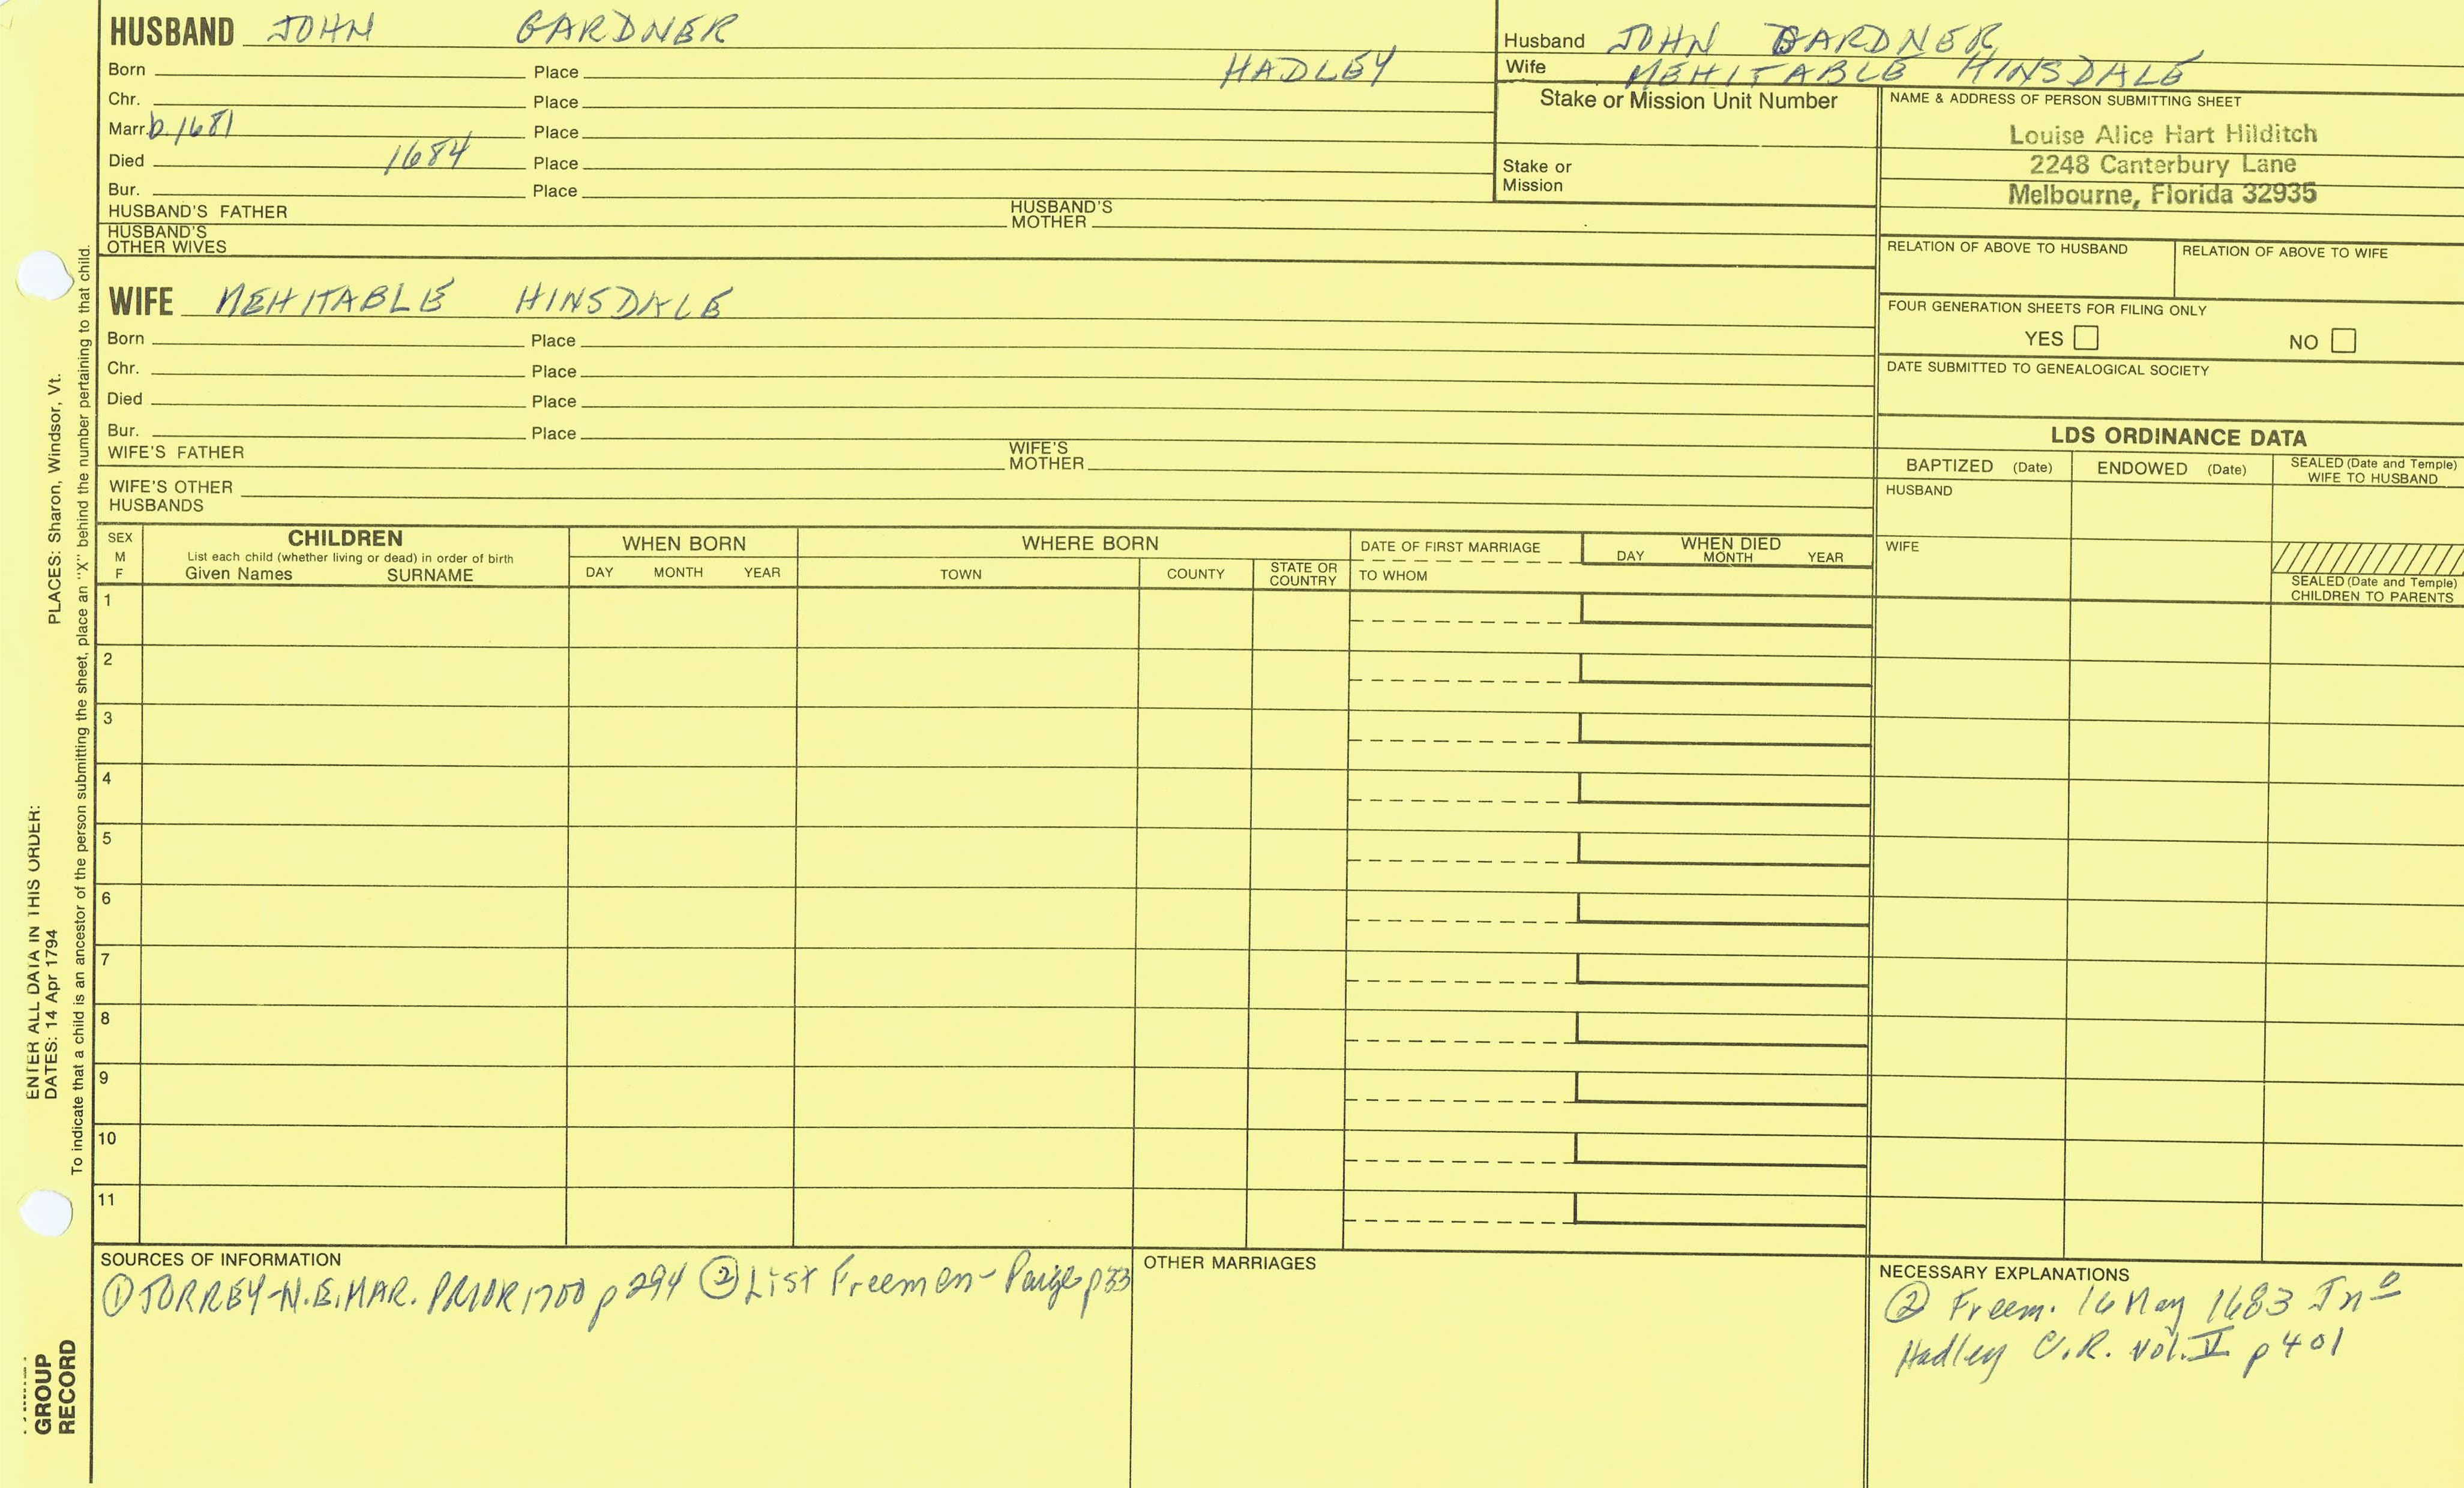 HUSBAND JOHN GARDNER
Born Place HADLEY
Chr. Place
Marr. b. 1681 Place
Died 1684 Place
Bur. Place
HUSBAND'S FATHER HUSBAND'S MOTHER
HUSBAND'S OTHER WIVES
Husband JOHN GARDNER
Wife MEHITABLE HINSDALE
Stake or Mission Unit Number
Stake or
Mission
NAME & ADDRESS OF PERSON SUBMITTING SHEET
Louise Alice Hart Hilditch
2248 Canterbury Lane
Melbourne, Florida 32935
RELATION OF ABOVE TO HUSBAND RELATION OF ABOVE TO WIFE
FOUR GENERATION SHEETS FOR FILING ONLY
YES NO
DATE SUBMITTED TO GENEALOGICAL SOCIETY
WIFE MEHITABLE HINSDALE
Born Place
Chr. Place
Died Place
Bur. Place
WIFE'S FATHER WIFE'S MOTHER
WIFE'S OTHER
HUSBANDS
LDS ORDINANCE DATA
BAPTIZED (Date) ENDOWED (Date) SEALED (Date and Temple) WIFE TO HUSBAND
HUSBAND
WIFE
SEALED (Date and Temple)
CHILDREN TO PARENTS
SEX
M
F
CHILDREN
List each child (whether living or dead) in order of birth
Given Names SURNAME
WHEN BORN
DAY MONTH YEAR
WHERE BORN
TOWN COUNTY STATE OR COUNTRY
DATE OF FIRST MARRIAGE
TO WHOM
WHEN DIED
DAY MONTH YEAR
1
2
3
4
5
6
7
8
9
10
11
SOURCES OF INFORMATION
① TORREY-N.E. MAR. PRIOR 1700 p 294 ② List Freemen- Paige p 33
OTHER MARRIAGES
NECESSARY EXPLANATIONS
② Freem. 16 May 1683 Jno
Hadley C.R. Vol. V p 401
ENTER ALL DATA IN THIS ORDER:
DATES: 14 Apr 1794 PLACES: Sharon, Windsor, Vt.
To indicate that a child is an ancestor of the person submitting the sheet, place an "X" behind the number pertaining to that child.
GROUP
RECORD